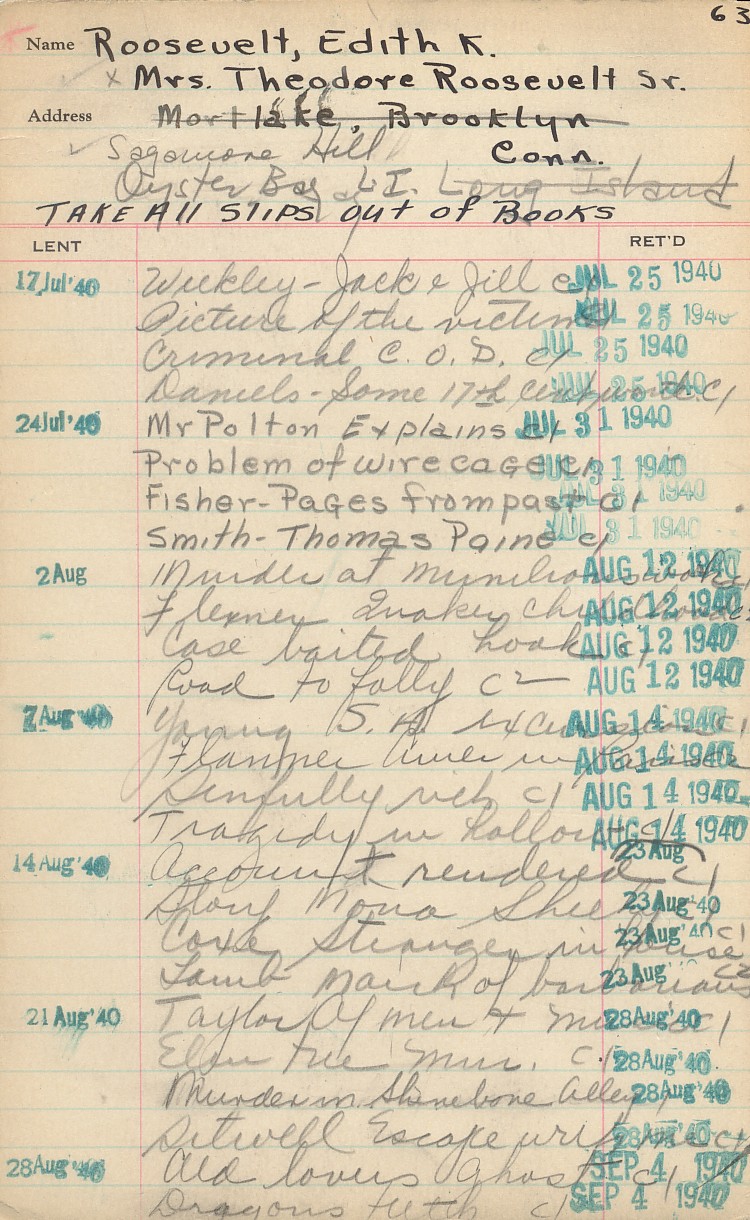 63
Name Roosevelt, Edith K.
x Mrs. Theodore Roosevelt Sr.
Address Mortlake, Brooklyn
Sagamore Hill Conn.
Oyster Bay L I. Long Island
TAKE All SlIPS out of BOOKS
LENT RET'D
17 Jul '40 Weekley - Jack & Jill c1 JUL 25 1940
Picture of the victim JUL 25 1940
Criminal C. O. D. c1 JUL 25 1940
Daniels - Some 17th cent c1 JUL 25 1940
24 Jul '40 Mr Polton Explains c1 JUL 31 1940
Problem of wire cage c1 JUL 31 1940
Fisher - Pages from past c1 JUL 31 1940
Smith - Thomas Paine c1 JUL 31 1940
2 Aug Murder at AUG 12 1940
Flexner Quaker childhood c2 AUG 12 1940
Case baited hook c1 AUG 12 1940
Road to folly c2 AUG 12 1940
7 Aug '40 Young S. A. excursion c1 AUG 14 1940
Flanner Amer in AUG 14 1940
Sinfully rich c1 AUG 14 1940
Tragedy in hollow c1 AUG 14 1940
14 Aug '40 Account rendered c1 23 Aug
Story Mona Sheehy c1 23 Aug '40
Coxe Stranger in house c1 23 Aug '40
Lamb March of barbarians c2 23 Aug
21 Aug '40 Taylor Of men & c1 28 Aug '40
Elm tree mur. c1 28 Aug '40
Murder in Shinebone Alley 28 Aug '40
Sitwell Escape c1 28 Aug '40
28 Aug '40 Old lovers ghost c1 SEP 4 1940
Dragons teeth c1 SEP 4 1940